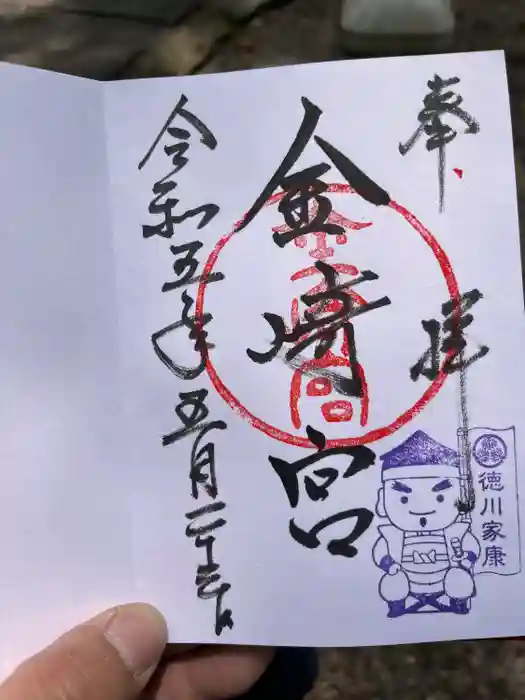 奉拝
金崎宮
金崎宮
令和五年五月二十三日
徳川家康